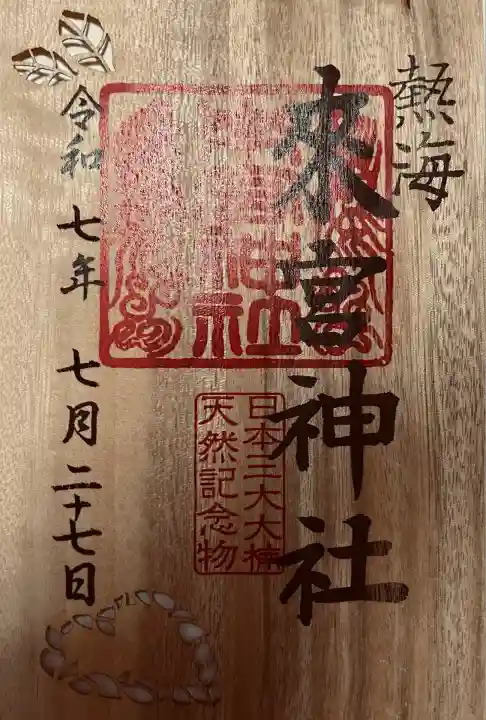 熱海
來宮神社
來宮神社
日本三大大楠
天然記念物
令和 七年 七月 二十七日